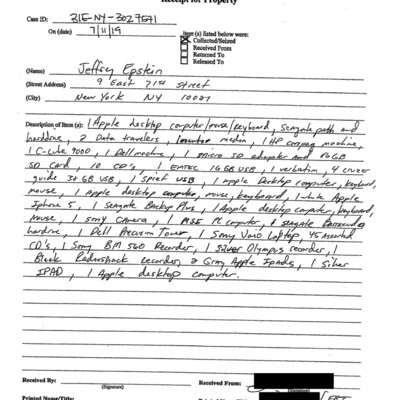 Receipt for Property
Case ID: 31E-NY-3027571
On (date) 7/11/19
item (s) listed below were:
Collected/Seized
Received From
Returned To
Released To
(Name) Jeffrey Epstein
(Street Address) 9 East 71st Street
(City) New York NY 10021
Description of Item (s): 1 Apple desktop computer/mouse/keyboard, Seagate and
harddrive, 2 Data travelers, 1 1 HP compaq machine,
1 C-cube 9000, 1 Dell machine, 1 micro SD adapter and 16GB
SD card, 10 CD's, 1 EMTEC 16GB USB, 1 verbatim, 4 cruzer
guide USB, 1 USB, 1 apple Desktop computer, keyboard,
mouse, 1 Apple desktop computer, mouse, keyboard, 1 white Apple
Iphone 5, 1 Seagate Backup Plus, 1 Apple desktop computer, keyboard,
mouse, 1 Sony Camera, 1 PC computer, Seagate Barracuda
hardrive, 1 Dell Precision Tower, 1 Sony Vaio Laptop, 45 Assorted
CD's, 1 Sony BM 560 Recorder, 1 Silver Olympus recorder, 1
Black Radioshack recorder, 2 Gray Apple Ipads, 1 Silver
IPAD, 1 Apple desktop computer.
Received By: (Signature)
Received From: (Signature)
Printed Name/Title: